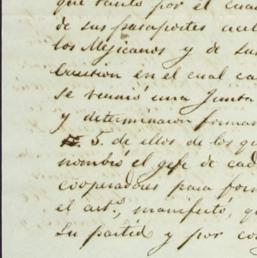 que tanto por el cua
de sus pasaportes
los Mejicanos y de su
en el cual ca
se reunió una Junta
y determinaron forma
5. de ellos de los qu
nombró el gefe de cad
cooperadores para for
el acto, manifestó, q
su partid y por co